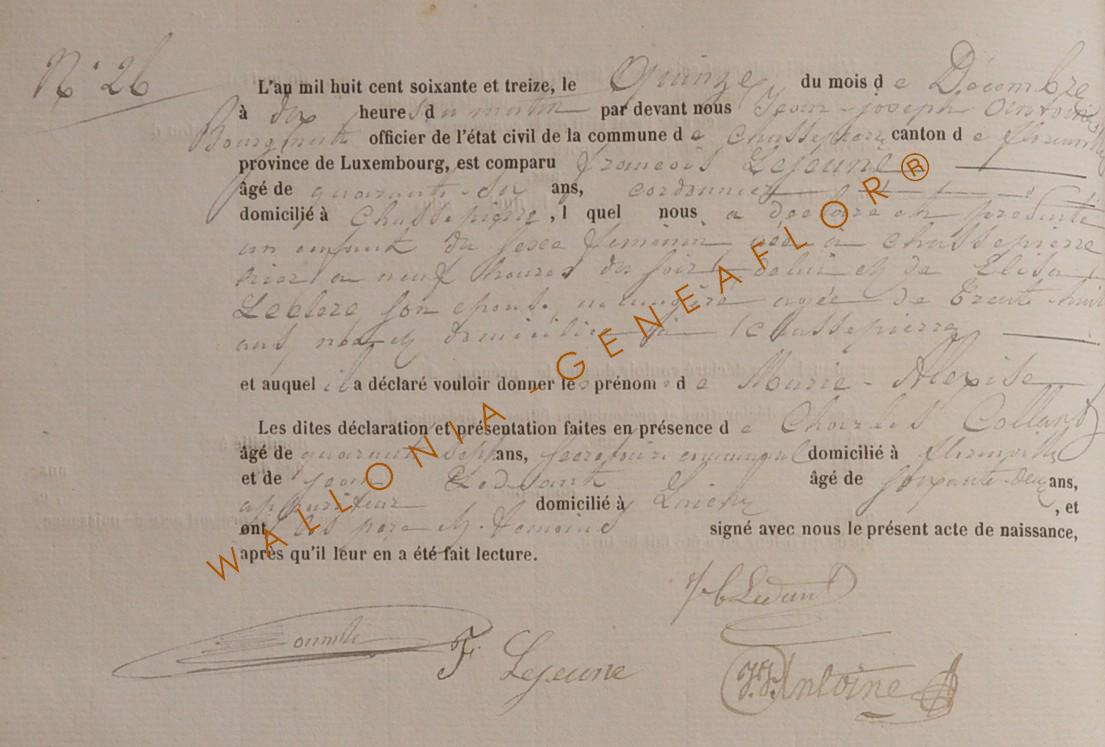 N° 26
L'an mil huit cent soixante et treize, le Quinze du mois d e Décembre
à dix heure s du matin par devant nous Jean-Joseph Antoine
Bourgmestre officier de l'état civil de la commune d e Chassepierre canton d e Florenville
province de Luxembourg, est comparu François Lejeune
âgé de quarante ans, cordonnier
domicilié à Chassepierre, l quel nous a déclaré et présenté
un enfant du sexe feminin née à Chassepierre
hier a neuf heures du soir de lui et de Elisa
Leclere son epouse, menagère agée de trente huit
ans, née et domiciliée à Chassepierre
et auquel il a déclaré vouloir donner le s prénom s d e Marie-Alexise
Les dites déclaration et présentation faites en présence d e Charles Collard
âgé de quarante sept ans, secrétaire communal domicilié à Florenville
et de Jean Ledant âgé de soixante deux ans,
appariteur domicilié à Laiche, et
ont les père et témoins signé avec nous le présent acte de naissance,
après qu'il leur en a été fait lecture.
Ledant
F. Lejeune
J.J. Antoine
WALLONIA-GENEAFLOR®